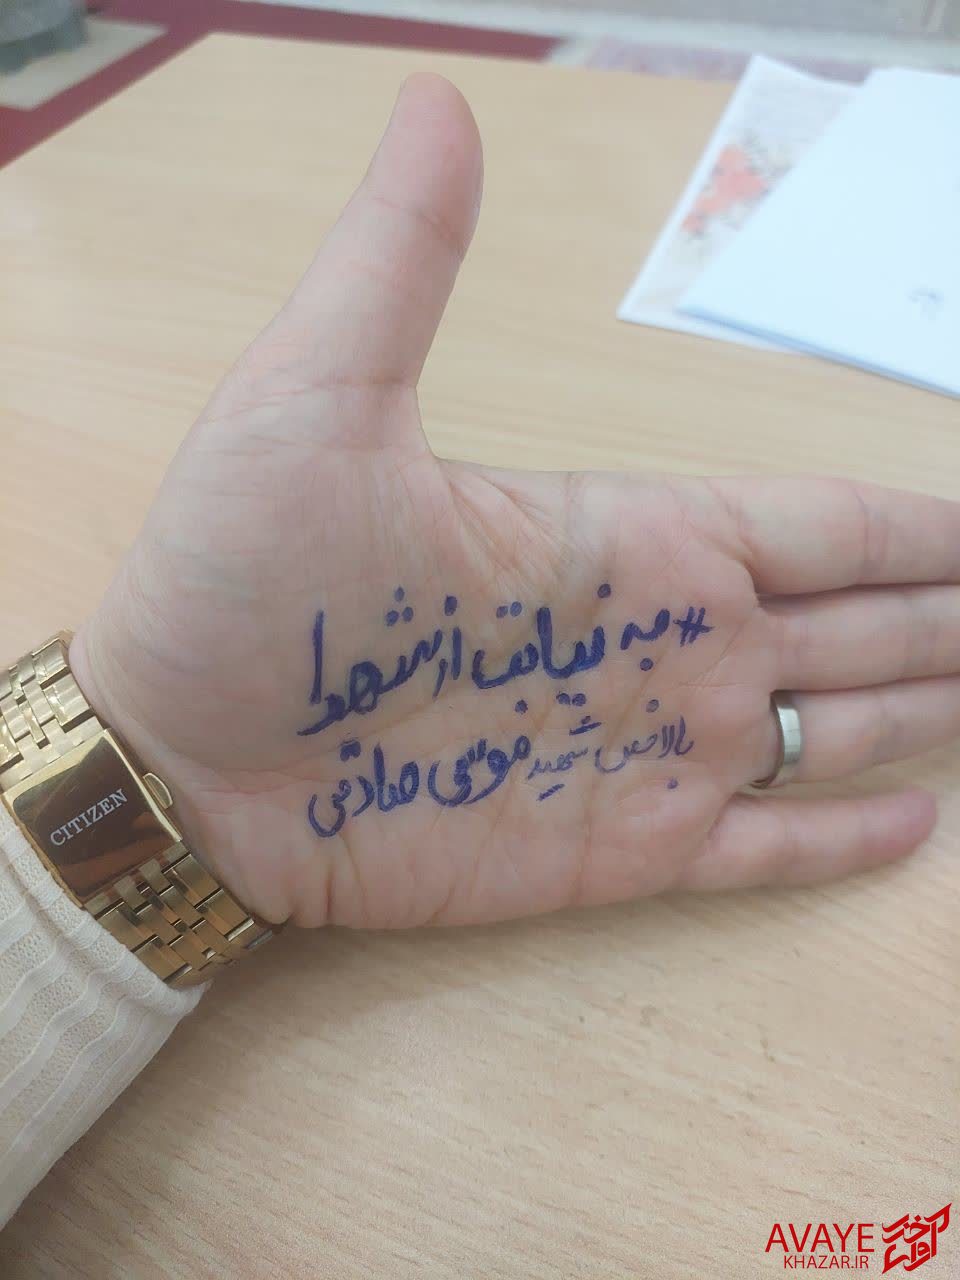 #به نیابت از شهدا
بالاخص شهید موسی صادقی
CITIZEN
AVAYE
KHAZAR.IR